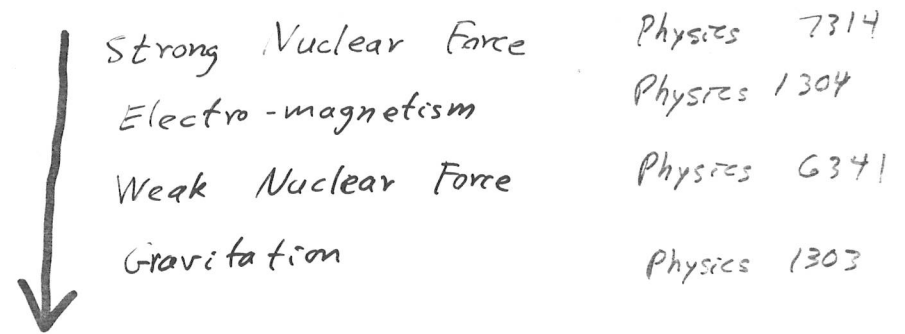 Strong Nuclear Force Physics 7314
Electro-magnetism Physics 1304
Weak Nuclear Force Physics 6341
Gravitation Physics 1303